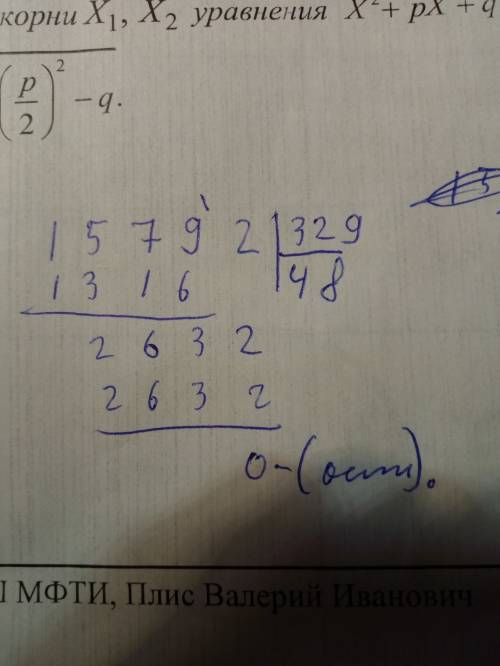 корни X₁, X₂ уравнения X²+ pX + q
(p/2)² – q.
1 5 7 9 2 | 329
1 3 1 6 | 48
2 6 3 2
2 6 3 2
0 - (ост).
МФТИ, Плис Валерий Иванович